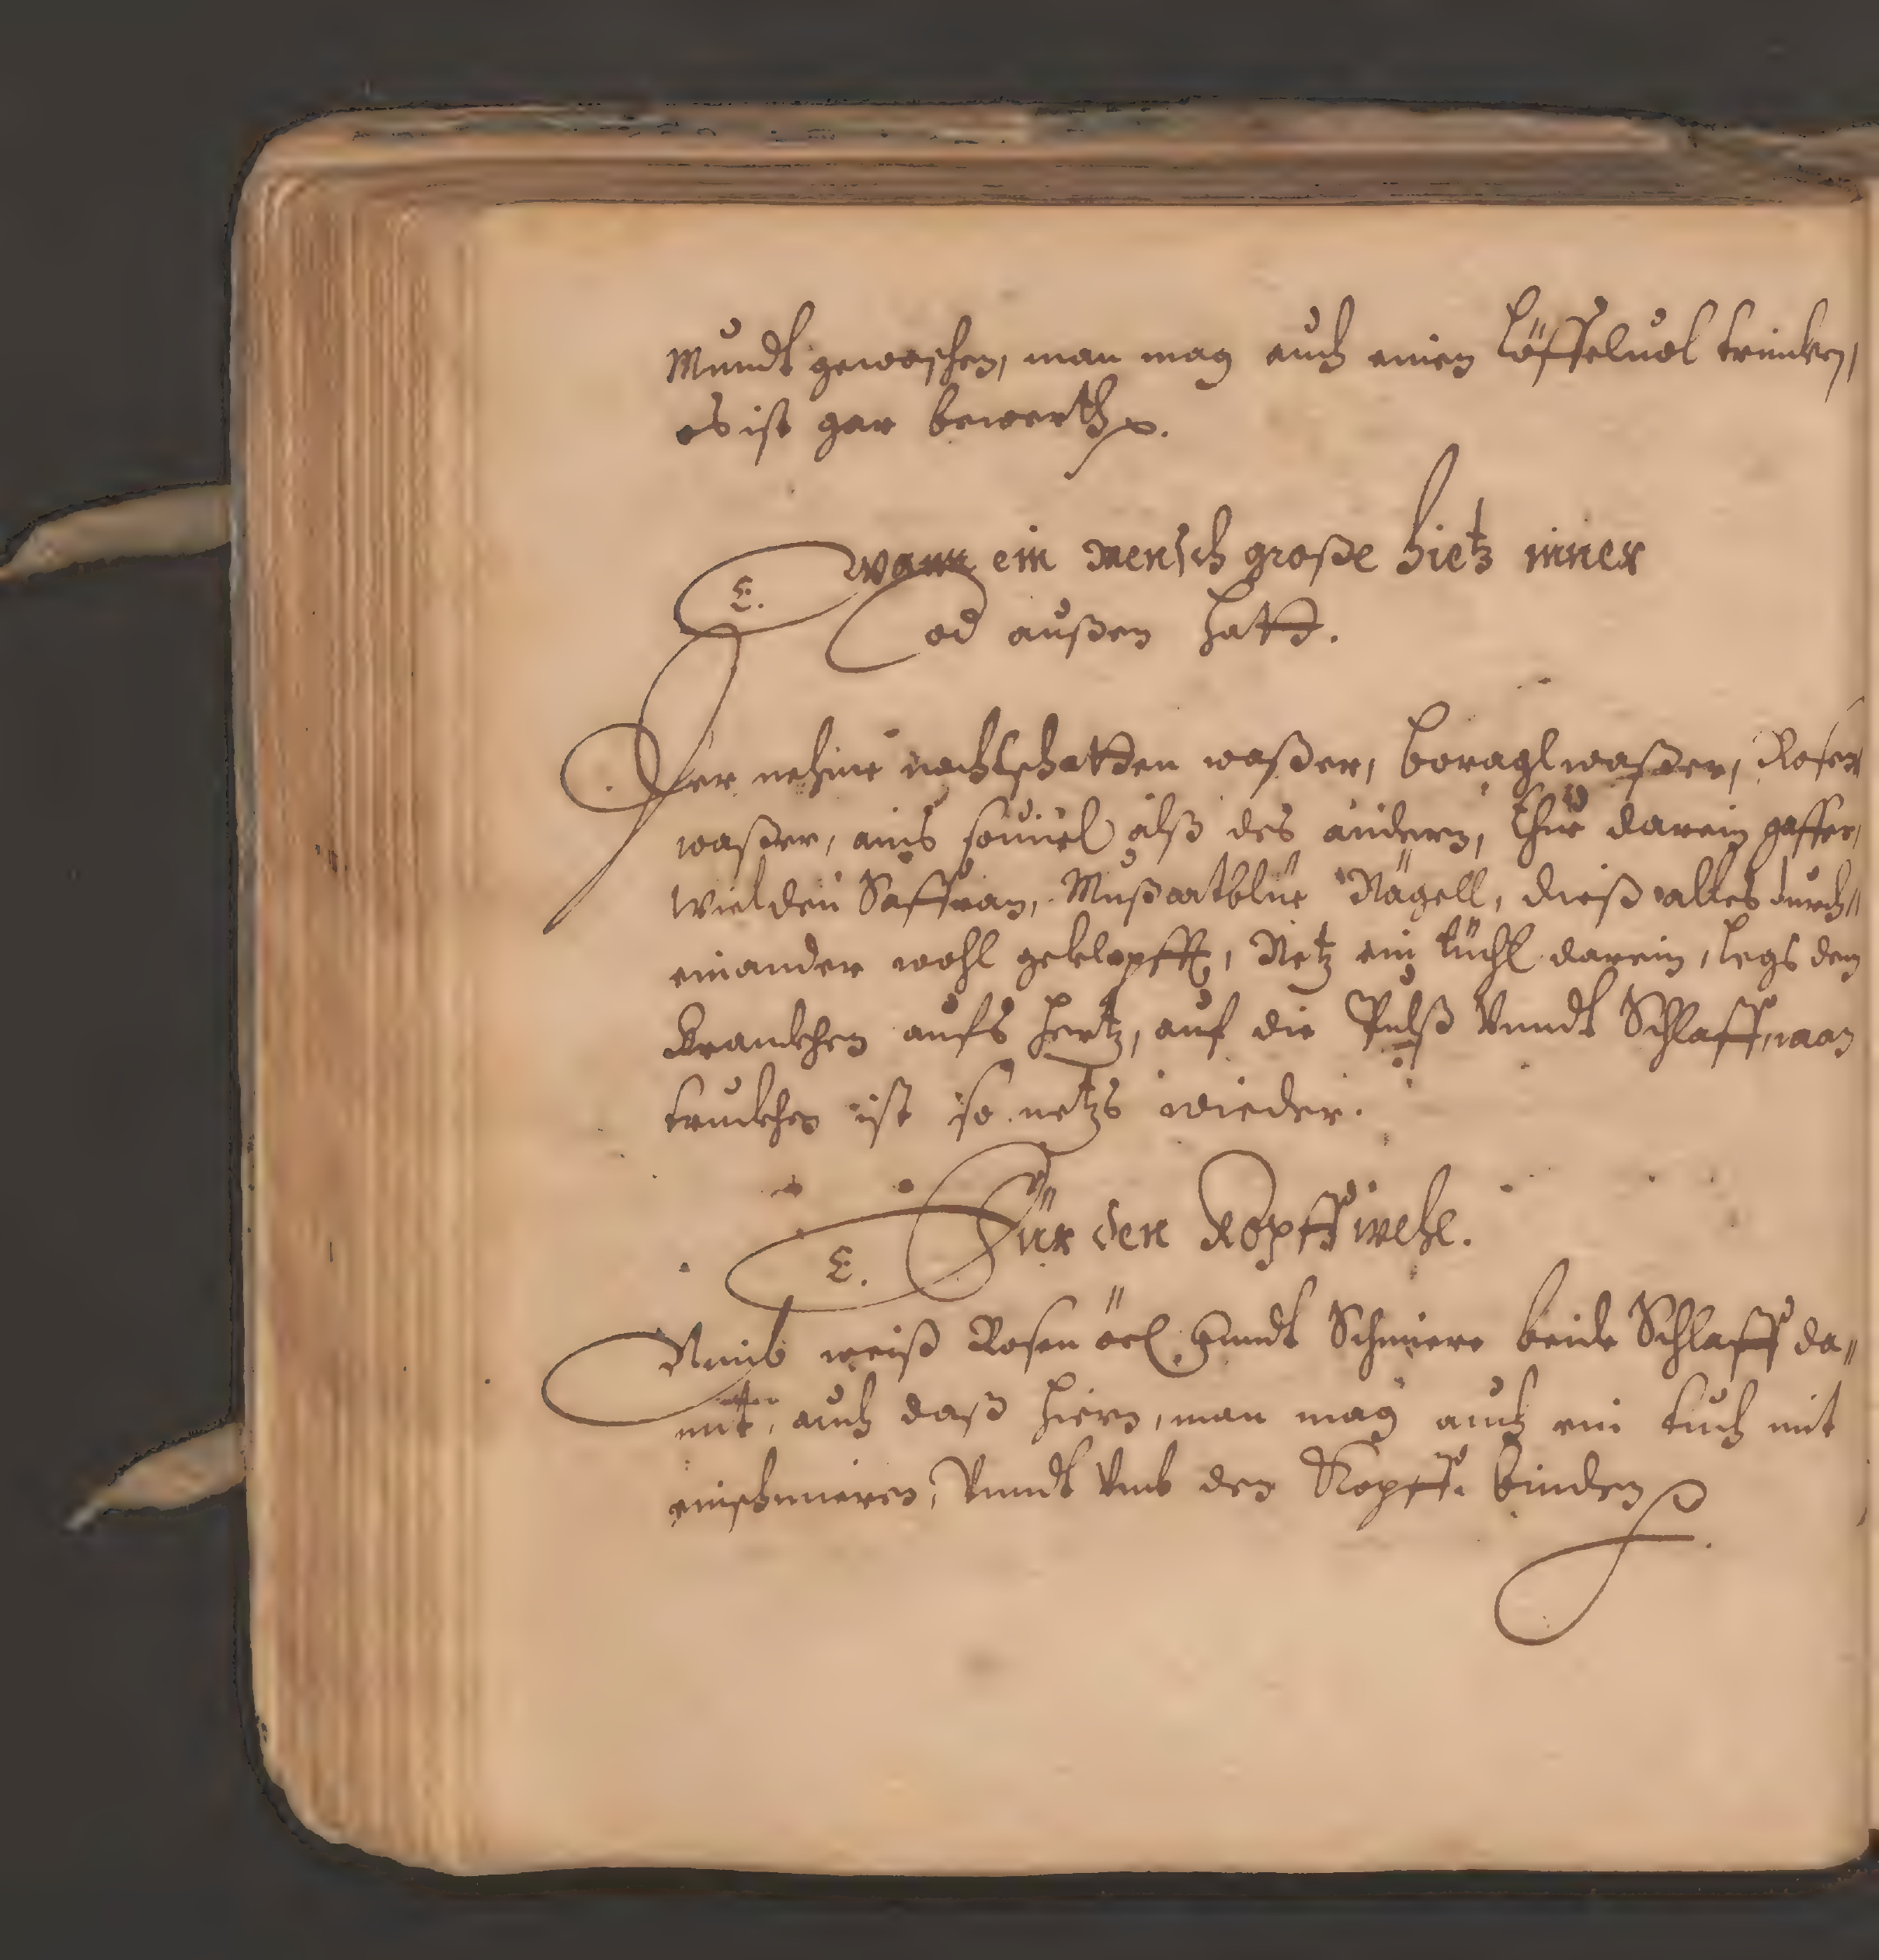 Mundt gewaschen, man mag auch einen Löffeluol trinckhen,
es ist gar bewerth.
wann ein mensch große hietz inner
E.
od außen hatt.
Der nehme nachtschatten waßer, boraglwaßer, Rosen
waßer, ains souiel alß des andern, thue darein gaffer,
wielden Saffran, Mußcatblüe Nägell, dieß alles durch"
einander wohl geklopfft, Netz ein tüchl darein, legs dem
Kranckhen aufs hertz, auf die Pulß Vnndt Schlaff, wan
truckhen ist so netzs wieder.
Für den Kopff wehe.
E.
Nimb weiß Rosen öel Vnndt Schmiere beide Schlaff da"
mit, auch daß hiern, man mag auch ein tuch mit
einschmieren, Vnndt Vmb den Kopff binden